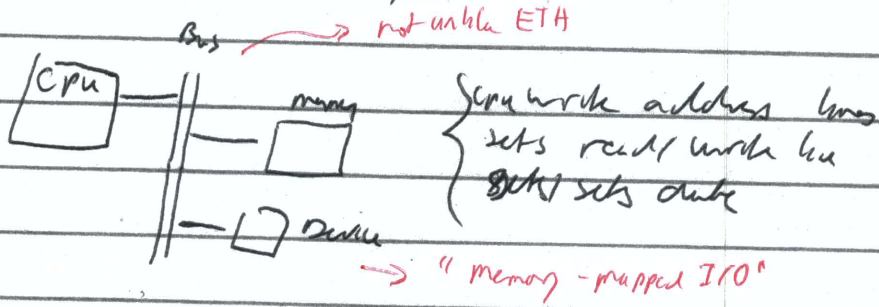 Bus
not unlike ETH
CPU
memory
CPU write address lines
sets read/write line
gets/sets data
Device
"memory-mapped I/O"